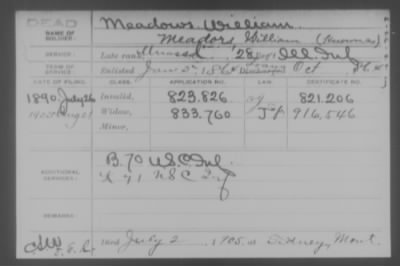 DEAD
NAME OF SOLDIER:
Meadows, William
Meadors, William
SERVICE:
Late rank, 28 Regt Ill. Inf
TERM OF SERVICE:
Enlisted Discharged Oct
DATE OF FILING. CLASS. APPLICATION NO. LAW. CERTIFICATE NO.
1890 July 26 Invalid, 823.826 821.206
Aug 21 Widow, 833.760 916,546
Minor,
ADDITIONAL SERVICES:
B. 70 U.S.C. Inf.
K 71 U S C Inf
REMARKS:
Died July 2 1905, at Sidney, Mont.